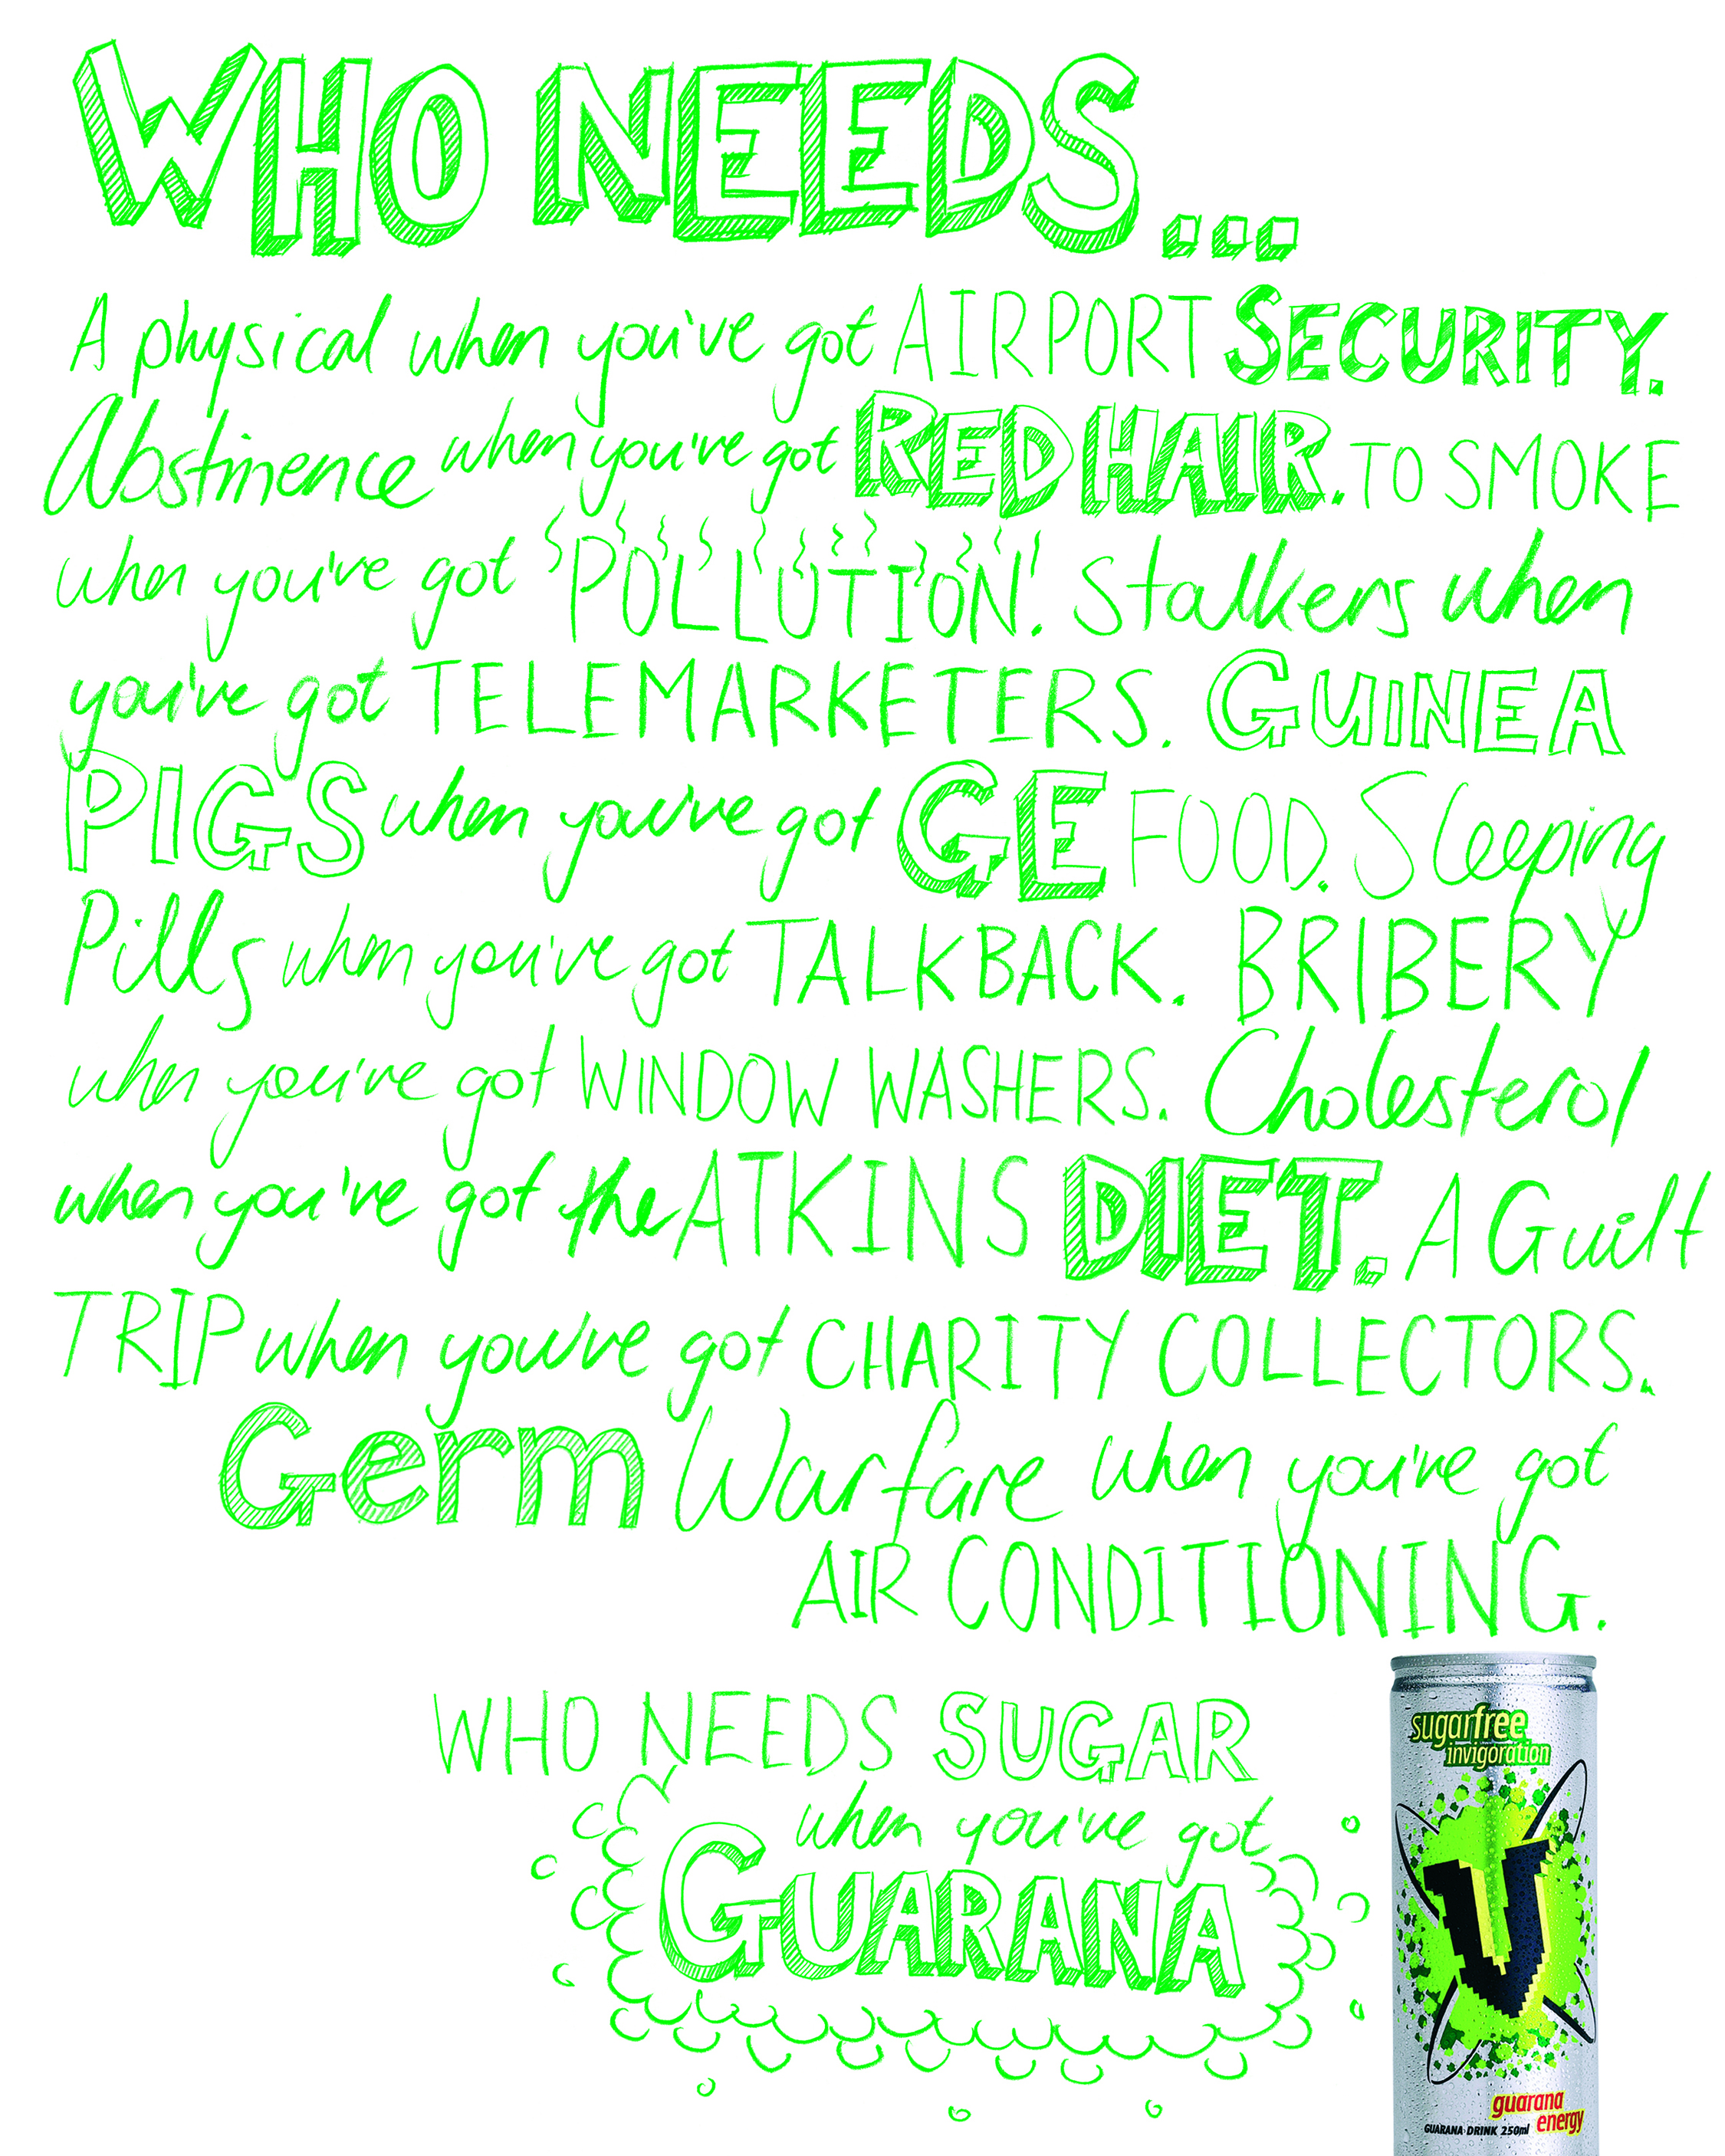 WHO NEEDS...
A physical when you've got AIRPORT SECURITY.
Abstinence when you've got RED HAIR. TO SMOKE
when you've got 'POLLUTION'. Stalkers when
you've got TELEMARKETERS. GUINEA
PIGS when you've got GE FOOD. Sleeping
Pills when you've got TALKBACK. BRIBERY
when you've got WINDOW WASHERS. Cholesterol
when you've got the ATKINS DIET. A Guilt
TRIP when you've got CHARITY COLLECTORS.
Germ Warfare when you've got
AIR CONDITIONING.
WHO NEEDS SUGAR
when you've got
GUARANA
sugarfree
invigoration
V
guarana
energy
GUARANA DRINK 250ml